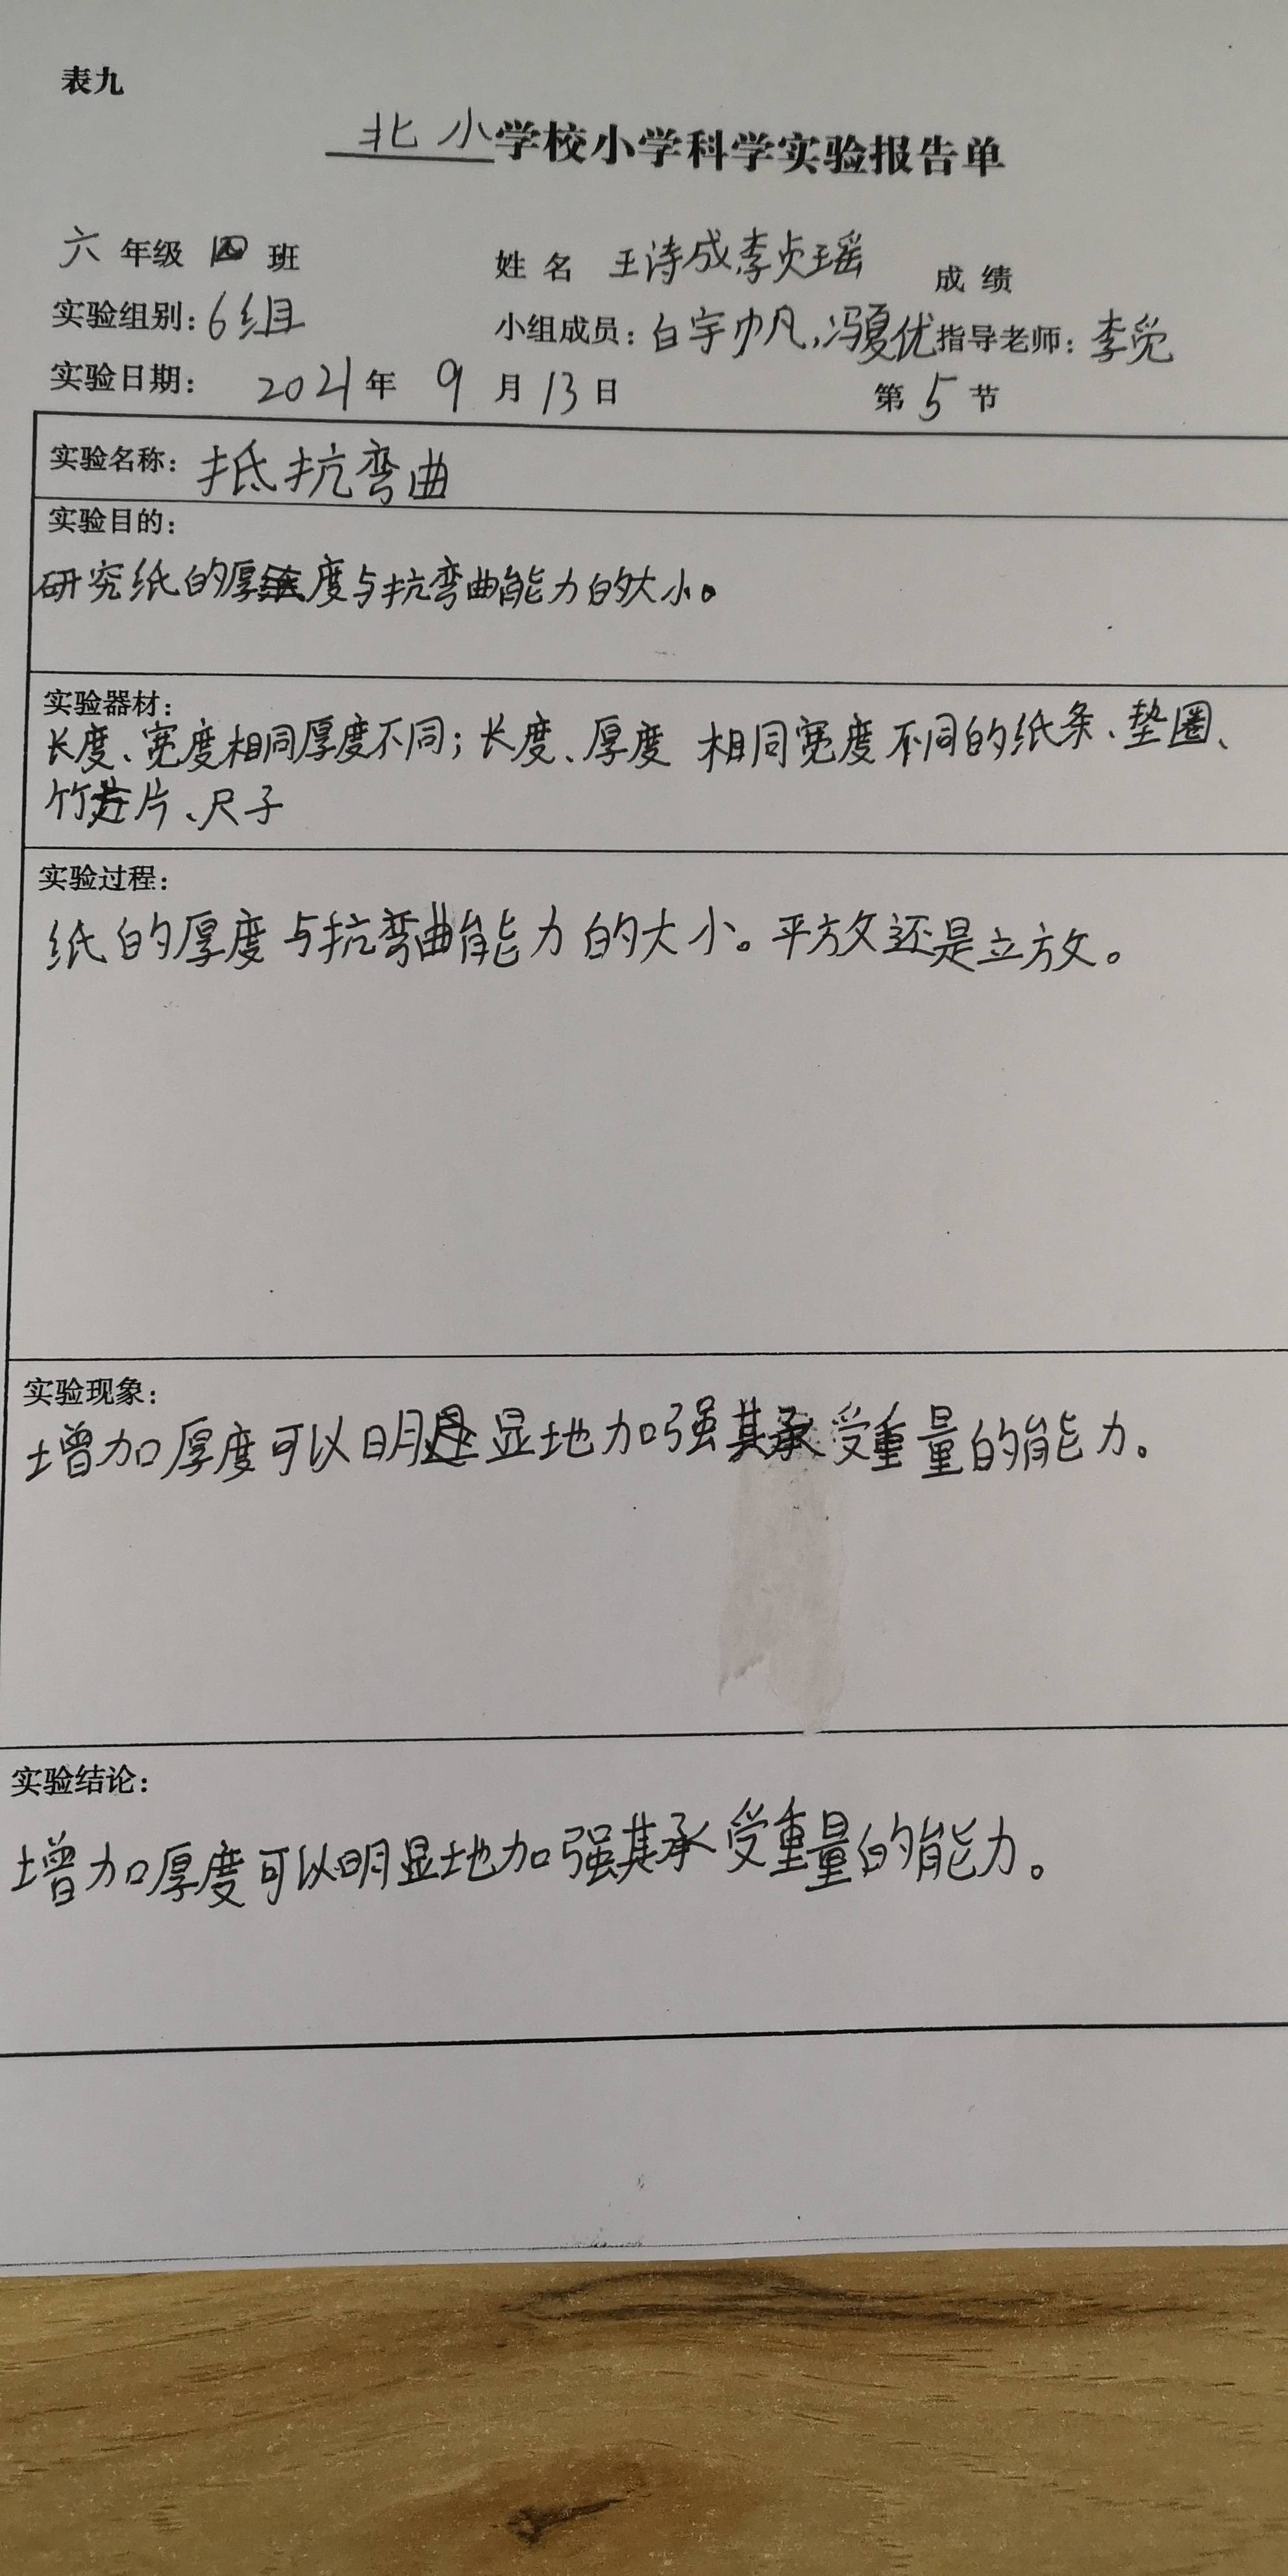 表九
北小学校小学科学实验报告单
六年级四班 姓名 王诗成李贞瑶 成绩
实验组别：6组 小组成员：白宇帆，冯夏优 指导老师：李觉
实验日期： 2021年 9月13日 第5节
实验名称：抵抗弯曲
实验目的：
研究纸的厚度与抗弯曲能力的大小。
实验器材：
长度、宽度相同厚度不同；长度、厚度 相同宽度不同的纸条、垫圈、
竹片、尺子
实验过程：
纸的厚度与抗弯曲能力的大小。平放还是立放。
实验现象：
增加厚度可以明显地加强其承受重量的能力。
实验结论：
增加厚度可以明显地加强其承受重量的能力。